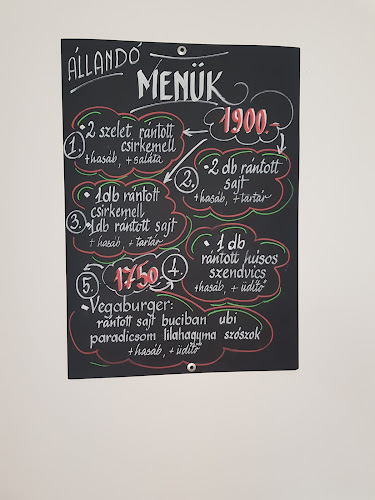 ÁLLANDÓ
MENÜK
1900.-
1. • 2 szelet rántott
csirkemell
+hasáb, + saláta
2. • 2 db rántott
sajt
+hasáb, + tartár
3. • 1db rántott
csirkemell
• 1db rántott sajt
+ hasáb, + tartár
• 1 db
rántott húsos
szendvics
+hasáb, + üdítő
1750.-
4.
5.
• Vegaburger:
rántott sajt buciban ubi
paradicsom lilahagyma szószok
+hasáb, + üdítő